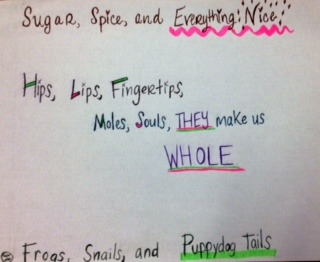 Sugar, Spice, and Everything: Nice!
Hips, Lips, Fingertips,
Moles, Souls, THEY make us
WHOLE
Frogs, Snails, and Puppydog Tails